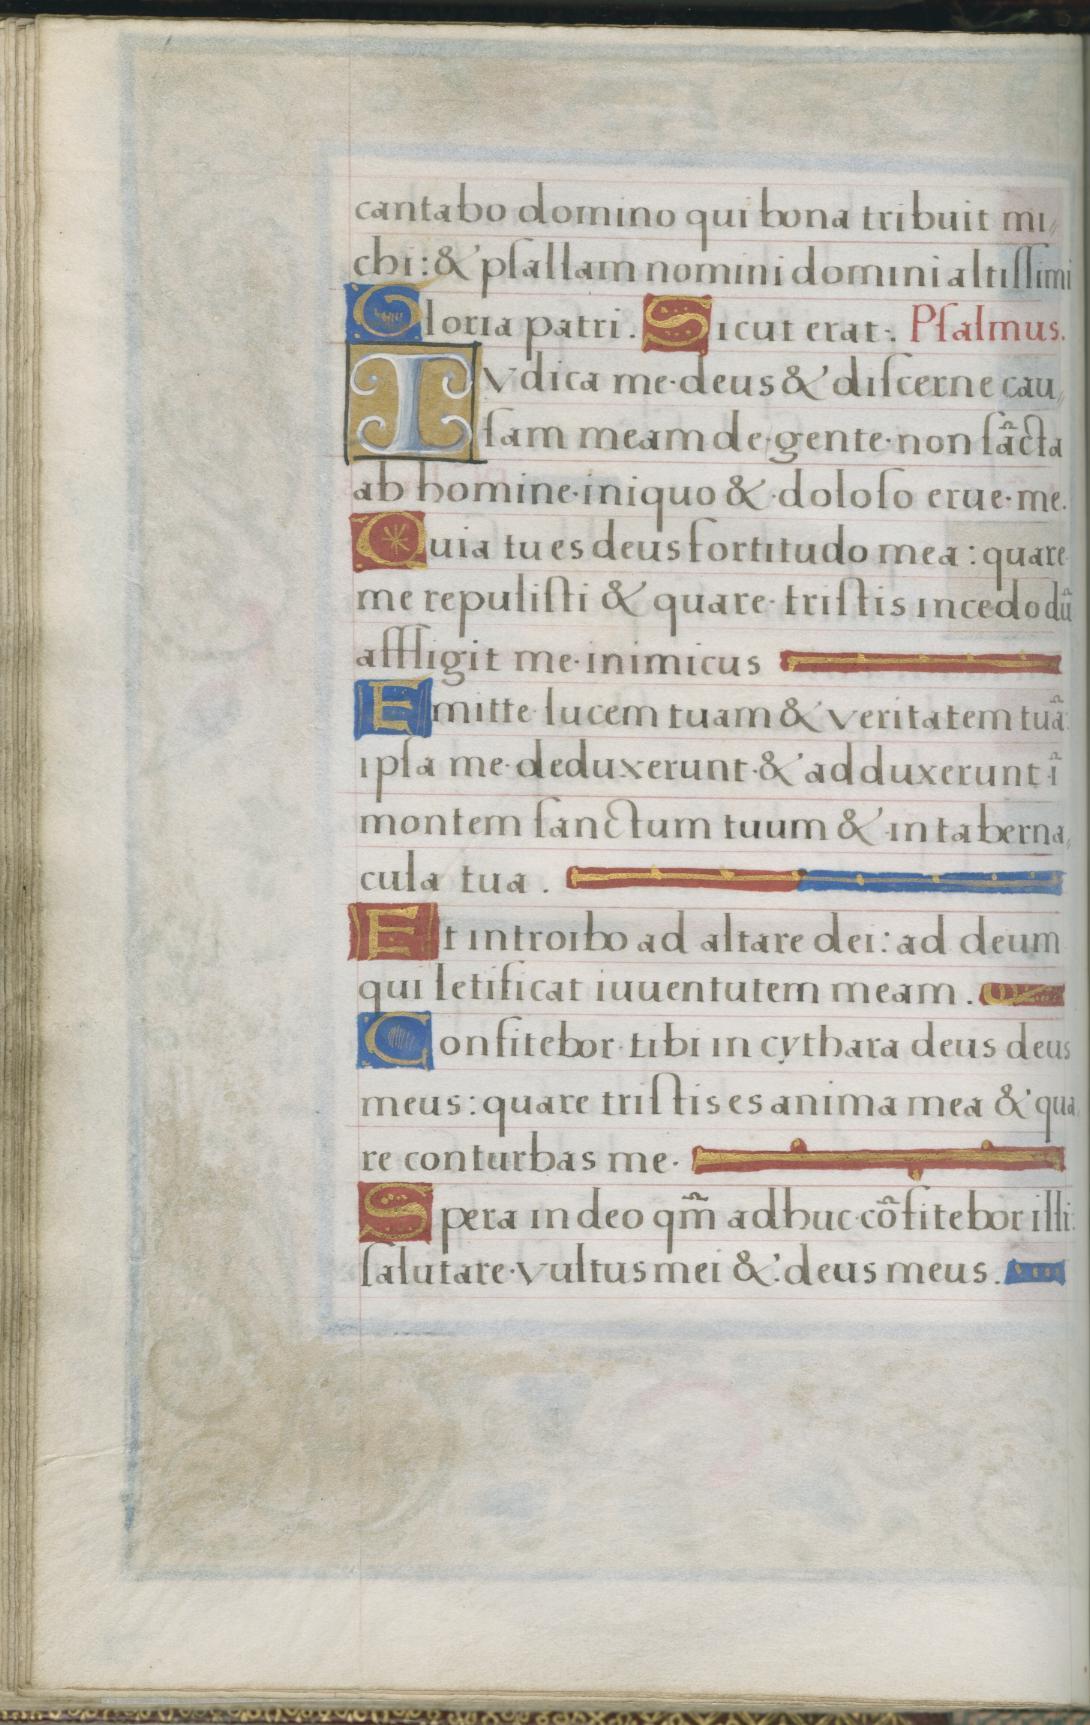 cantabo domino qui bona tribuit mi,,
chi: & pſallam nomini domini altiſſimi
Gloria patri. Sicut erat: Pſalmus.
Ivdica me deus & diſcerne cau,,
ſam meam de gente non ſãcta
ab homine iniquo & doloſo erue me.
Quia tu es deus fortitudo mea: quare
me repuliſti & quare triſtis incedo dũ
affligit me inimicus
Emitte lucem tuam & veritatem tuã:
ipſa me deduxerunt & adduxerunt ĩ
montem ſanctum tuum & in taberna,,
cula tua.
Et introibo ad altare dei: ad deum
qui letificat iuuentutem meam.
Confitebor tibi in cythara deus deus
meus: quare triſtis es anima mea & qua
re conturbas me.
Spera in deo qm̃ adhuc cõfitebor illi:
ſalutare vultus mei & deus meus.